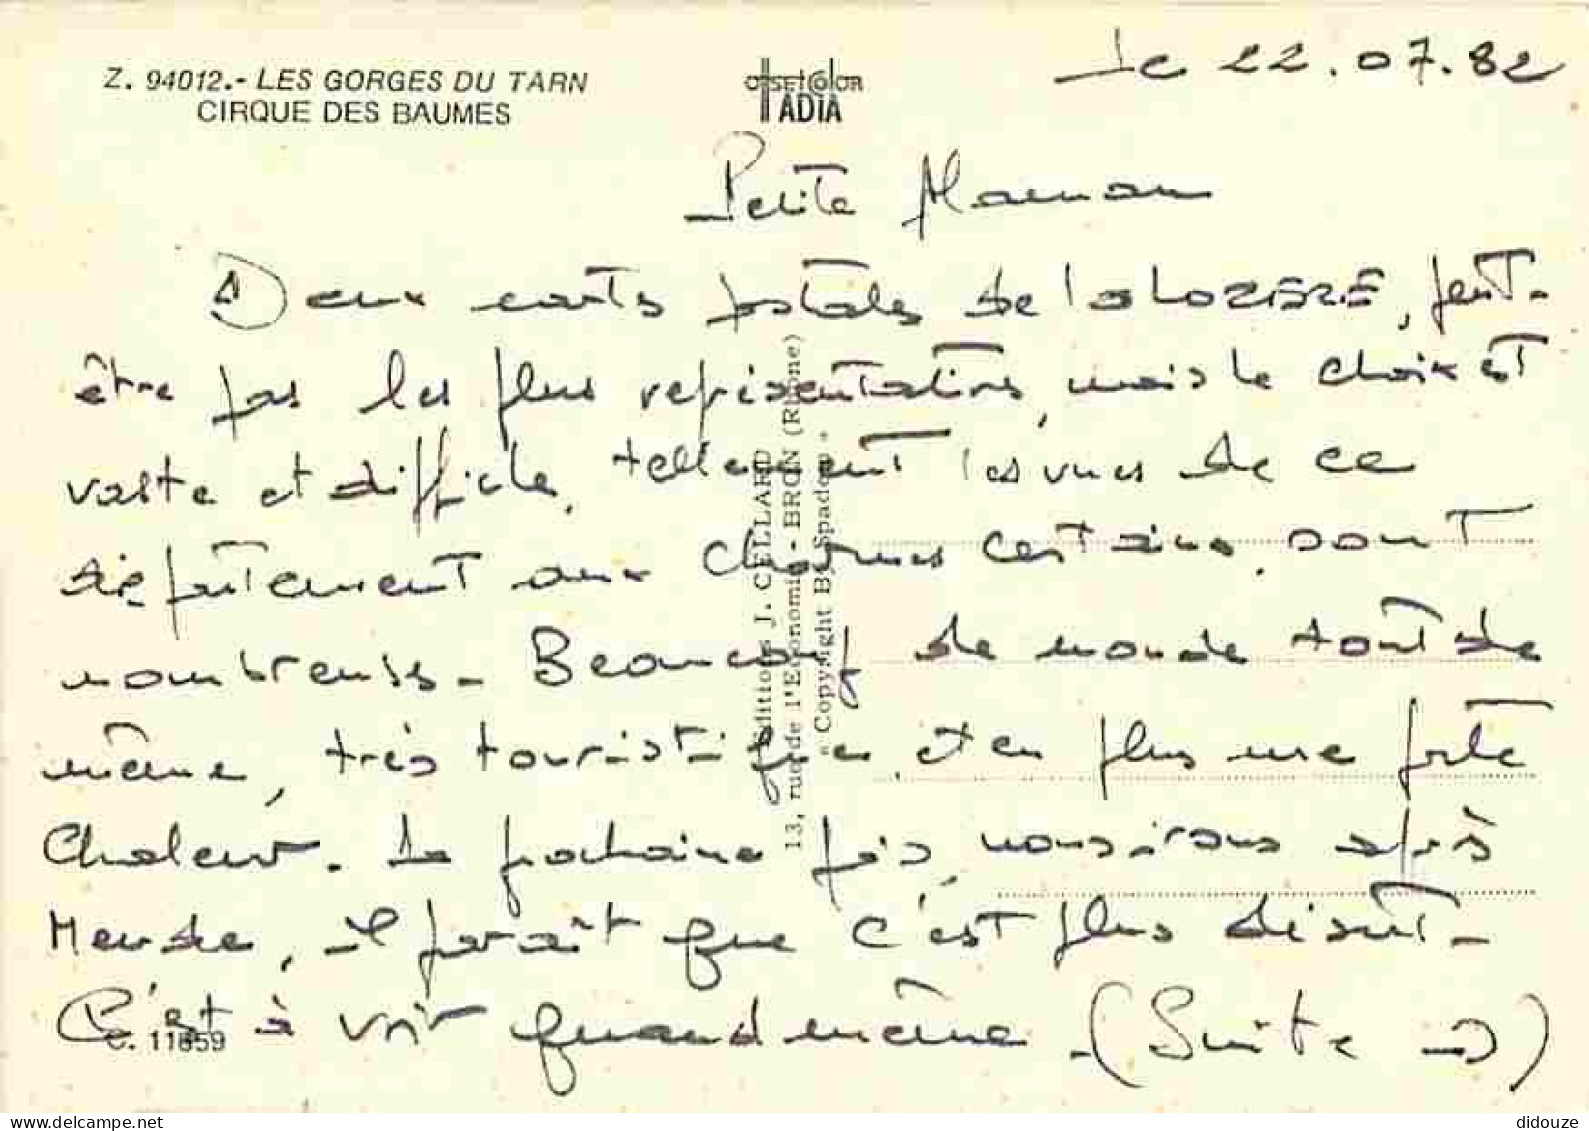 Z. 94012.- LES GORGES DU TARN
CIRQUE DES BAUMES
OFFSETCOLOR
IADIA
Le 22.07.82
Petite Maman
Deux cartes postales de la LOZERE, peut-
être pas les plus représentatives, mais le choix est
vaste et difficile, tellement les vues de ce
département aux charmes certains, sont
nombreuses - Beaucoup de monde tout de
même, très touristique, et en plus une forte
Chaleur. La prochaine fois, nous irons après
Mende, Il paraît que c'est plus désert -
C'est à voir quand même. (Suite →)
C. 11859
Editions J. CELLARD
13, rue de l'Economie - BRON (Rhône)
« Copyright By Spadem »
didouze